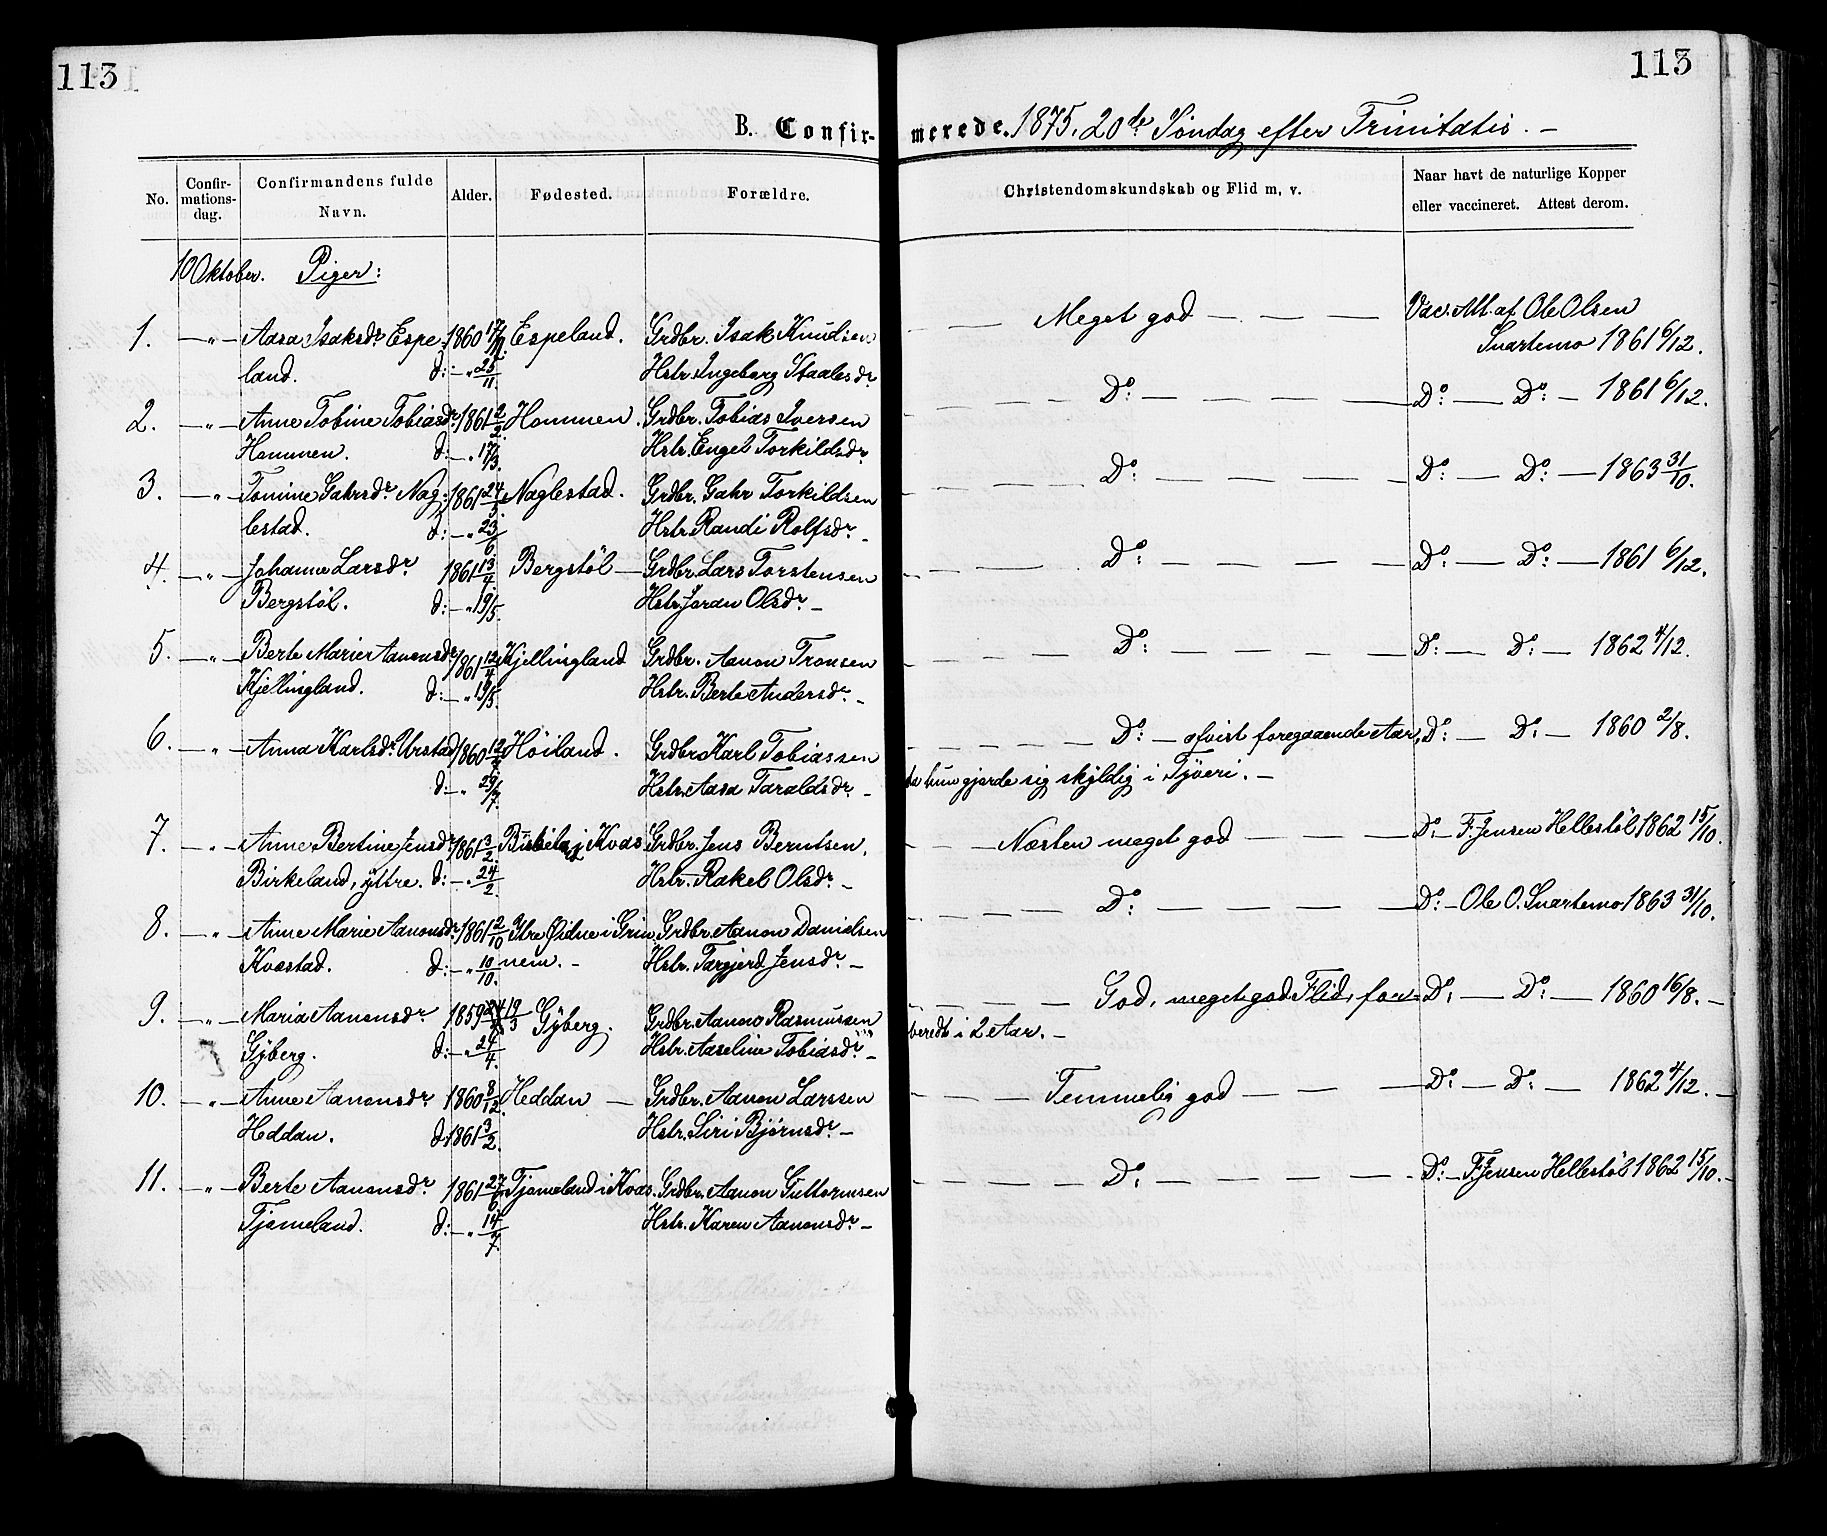 113
113
B. Confir- merede. 1875. 20de Søndag efter Trinitatis. –
No. Confir-mations-dag. Confirmandens fulde Navn. Alder. Fødested. Forældre. Christendomskundskab og Flid m, v. Naar havt de naturlige Kopper eller vaccineret. Attest derom.
10 Oktober. Piger:
1. — „ — Aasa Isaksdr Espe- 1860 17/9 Espeland. Grdbr. Isak Knudsen — — Meget god — — — Vac. Att. af Ole Olsen
land. d: — „ 25/11. Hstr. Ingeborg Staalesdr Svartemo 1861 6/12.
2. — „ — Anne Tobine Tobiasdr 1861 2/2. Hommen. Grdbr. Tobias Iversen — — — Do: — — — Do: — Do: — 1861 6/12.
Hommen. d: — „ 17/3. Hstr. Engel Torkildsdr
3. — „ — Tomine Gahrsdr Nag- 1861 24/5 Naglestad. Grdbr. Gahr Torkildsen — — — Do: — — — Do: — Do: — 1863 31/10.
lestad. d: — „ 23/6. Hstr. Randi Rolfsdr –
4. — „ — Johanne Larsdr 1861 13/4 Bergstøl — Grdbr. Lars Torstensen — — — Do: — — — Do: — Do: — 1861 6/12.
Bergstøl. d: — „ 19/5. Hstr. Joran Olsdr –
5. — „ — Berte Marie Aanonsdr 1861 12/4 Kjellingland Grdbr. Aanon Tronsen — — — Do: — — — Do: — Do: — 1862 4/12.
Kjellingland. d: — „ 19/5. Hstr. Berte Andersdr –
6. — „ — Anna Karlsdr Urstad 1860 Høiland. Grdbr. Karl Tobiassen — — — Do: — afvist foregaaende Aar, Do: — Do: — 1860 2/8.
d: — „ 29/7. Hstr. Aasa Taraldsdr – da hun gjorde sig skyldig i Tyveri. –
7. — „ — Anne Bertine Jensdr 1861 3/2. i Kvas Grdbr. Jens Berntsen. — — Næsten meget god — — — Do: – F. Jensen Hellestøl 1862 15/10.
Birkeland, ytre. d: — „ 24/2. Hstr. Rakel Olsdr –
8. — „ — Anne Marie Aanonsdr 1861 2/10 Ytre Øidne i Grin- Grdbr. Aanon Danielsen — — — Do: — — — Do: – Ole O. Svartemo 1863 31/10.
Kvæstad. d: — „ 10/10. nem. – Hstr. Targjerd Jensdr –
9. — „ — Maria Aanonsdr 1859 19/3 Gyberg. Grdbr. Aanon Rasmussen — — — God, meget god Flid, for- Do: — Do: — 1860 16/8. –
Gyberg. d: — „ 24/4. Hstr. Aaseline Tobiasdr – beredt i 2 Aar. –
10. — „ — Anne Aanonsdr 1860 8/12. Heddan — Grdbr. Aanon Larssen — — — Temmelig god — — — Do: — Do: — 1862 4/12. –
Heddan. d. 1861 3/2. Hstr. Siri Bjørnsdr –
11. — „ — Berte Aanonsdr 1861 27/6 Tjomeland i Kvas. Grdbr. Aanon Guttormsen — — — Do: — — — Do: – F. Jensen Hellestøl 1862 15/10. –
Tjomeland. d: — „ 14/7. Hstr. Karen Aanonsdr –